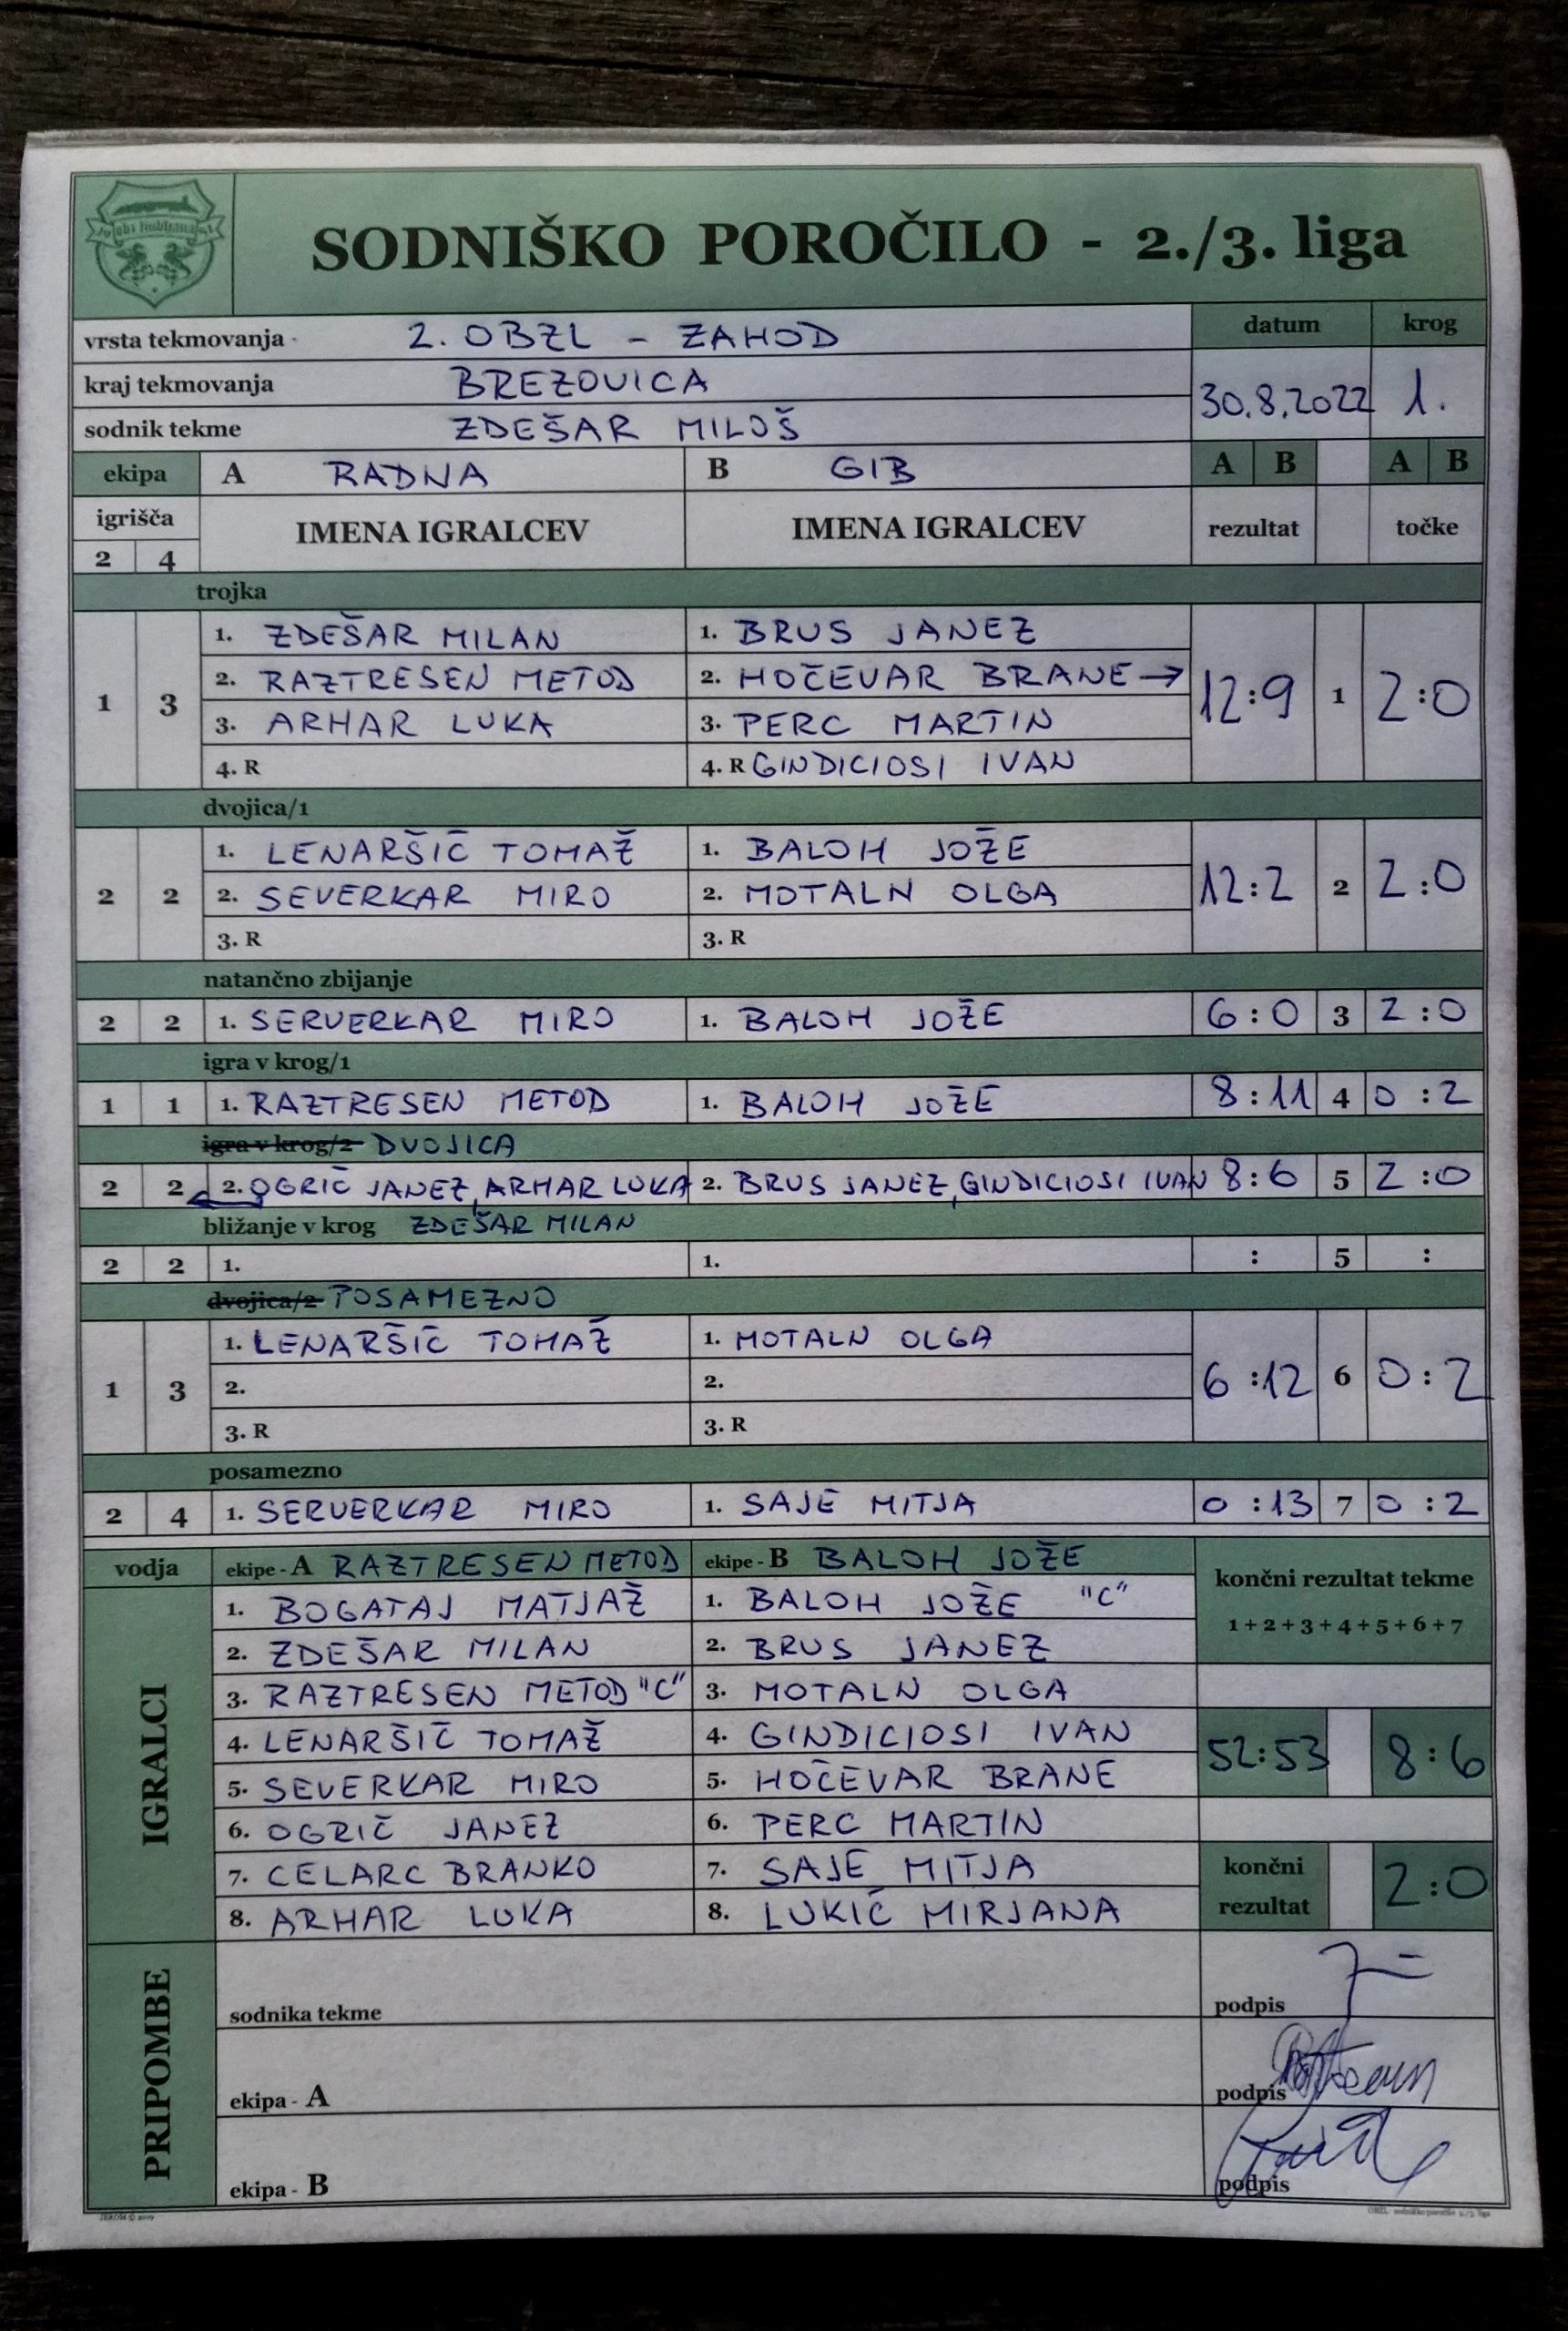 SODNIŠKO POROČILO - 2./3. liga
vrsta tekmovanja 2. OBZL - ZAHOD datum krog
kraj tekmovanja BREZOVICA 30.8.2022 1.
sodnik tekme ZDEŠAR MILOŠ
ekipa A RADNA B GIB A B A B
igrišča IMENA IGRALCEV IMENA IGRALCEV rezultat točke
2 4
trojka
1 3 12:9 1 2:0
1. ZDEŠAR MILAN 1. BRUS JANEZ
2. RAZTRESEN METOD 2. HOČEVAR BRANE →
3. ARHAR LUKA 3. PERC MARTIN
4. R 4. R GINDICIOSI IVAN
dvojica/1
2 2 12:2 2 2:0
1. LENARŠIČ TOMAŽ 1. BALOH JOŽE
2. SEVERKAR MIRO 2. MOTALN OLGA
3. R 3. R
natančno zbijanje
2 2 1. SERVERKAR MIRO 1. BALOH JOŽE 6:0 3 2:0
igra v krog/1
1 1 1. RAZTRESEN METOD 1. BALOH JOŽE 8:11 4 0:2
igra v krog/2 DVOJICA
2 2 2. OGRIČ JANEZ, ARHAR LUKA 2. BRUS JANEZ, GINDICIOSI IVAN 8:6 5 2:0
bližanje v krog ZDEŠAR MILAN
2 2 1. 1. : 5 :
dvojica/2 POSAMEZNO
1 3 6:12 6 0:2
1. LENARŠIČ TOMAŽ 1. MOTALN OLGA
2. 2.
3. R 3. R
posamezno
2 4 1. SERVERKAR MIRO 1. SAJE MITJA 0:13 7 0:2
vodja ekipe - A RAZTRESEN METOD ekipe - B BALOH JOŽE končni rezultat tekme
1 + 2 + 3 + 4 + 5 + 6 + 7
IGRALCI
1. BOGATAJ MATJAŽ 1. BALOH JOŽE "C"
2. ZDEŠAR MILAN 2. BRUS JANEZ
3. RAZTRESEN METOD "C" 3. MOTALN OLGA
4. LENARŠIČ TOMAŽ 4. GINDICIOSI IVAN 52:53 8:6
5. SEVERKAR MIRO 5. HOČEVAR BRANE
6. OGRIČ JANEZ 6. PERC MARTIN
7. CELARC BRANKO 7. SAJE MITJA končni rezultat 2:0
8. ARHAR LUKA 8. LUKIĆ MIRJANA
PRIPOMBE
sodnika tekme podpis
ekipa - A podpis
ekipa - B podpis